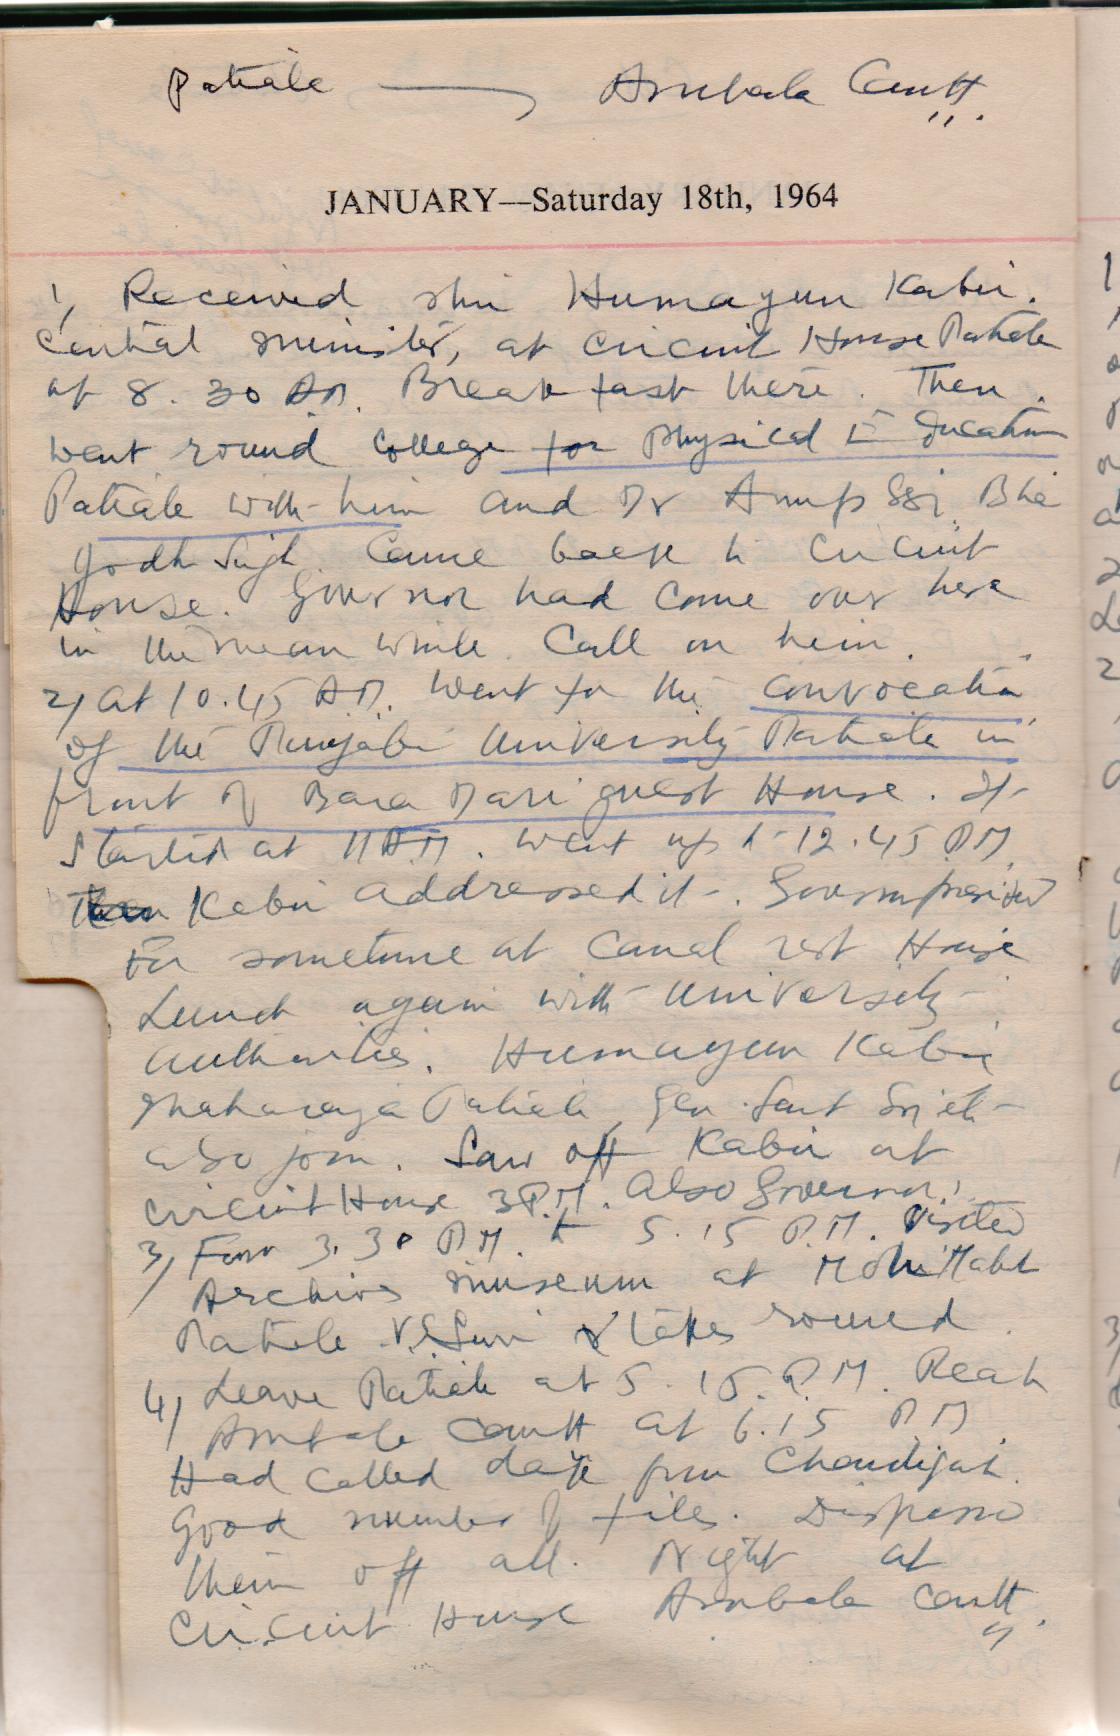 Patiala — Ambala Cantt.
JANUARY—Saturday 18th, 1964
1) Received Shri Humayun Kabir.
Central minister, at circuit House Patiala
at 8.30 AM. Breakfast there. Then
went round College for Physical Education
Patiala with him and Dr Anup Singh. Bhai
Jodh Singh. Came back to Circuit
House. Governor had come over here
in the mean while. Call on him.
2) at 10.45 A.M. Went for the convocation
of the Punjabi University Patiala in
front of Bara Dari guest House. It
started at 11 A.M. went up to 12.45 P.M.
Kabir addressed it. Governor presided
For sometime at Canal rest House
Lunch again with University
authorities. Humayun Kabir
Maharaja Patiala, Gen. Sant Singh
also join. Saw off Kabir at
circuit House 3 P.M. Also Governor.
3) From 3.30 P.M. to 5.15 P.M. Visited
Archives museum at Moti Mahal
Patiala. V.S. Suri takes round.
4) Leave Patiala at 5.15 P.M. Reach
Ambala Cantt at 6.15 P.M.
Had called from Chandigarh.
Good number of files. Dispose
them off all. Night at
Circuit House Ambala Cantt.